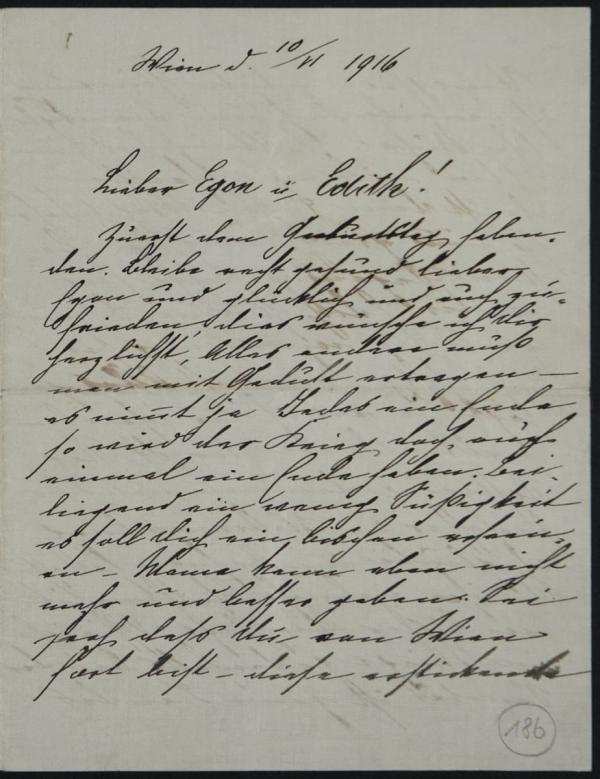 Wien d. 10/VI 1916
Lieber Egon u Edith!
Zuerst dem Geburtstag haben-
den. Bleibe recht gesund lieber
Egon und glücklich und auch zu-
frieden, dies wünsche ich dir
herzlichst, Alles andere muß
man mit Gedult ertragen –
es nimt ja Jedes ein Ende
so wird der Krieg doch auch
einmal ein Ende haben. Bei-
liegend ein wenig Süßigkeit
es soll dich ein bischen erfreu-
en – Mama kann eben nicht
mehr und besser geben. Sei
froh dass du von Wien
fort bist – diese erstickende
186